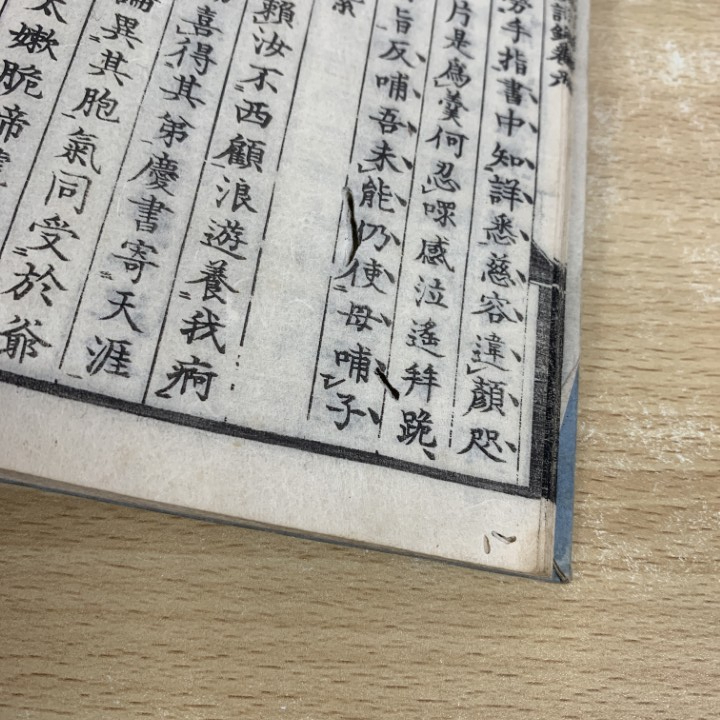 詩鈔卷
手指書中知詳悉慈容違顏咫
片是爲羹何忍啜感泣遙拜跪
旨反哺吾未能仍使母哺子
賴汝不西顧浪遊養我痾
喜得其第慶書寄天涯
異其胞氣同受於爺
太嫩脆啼